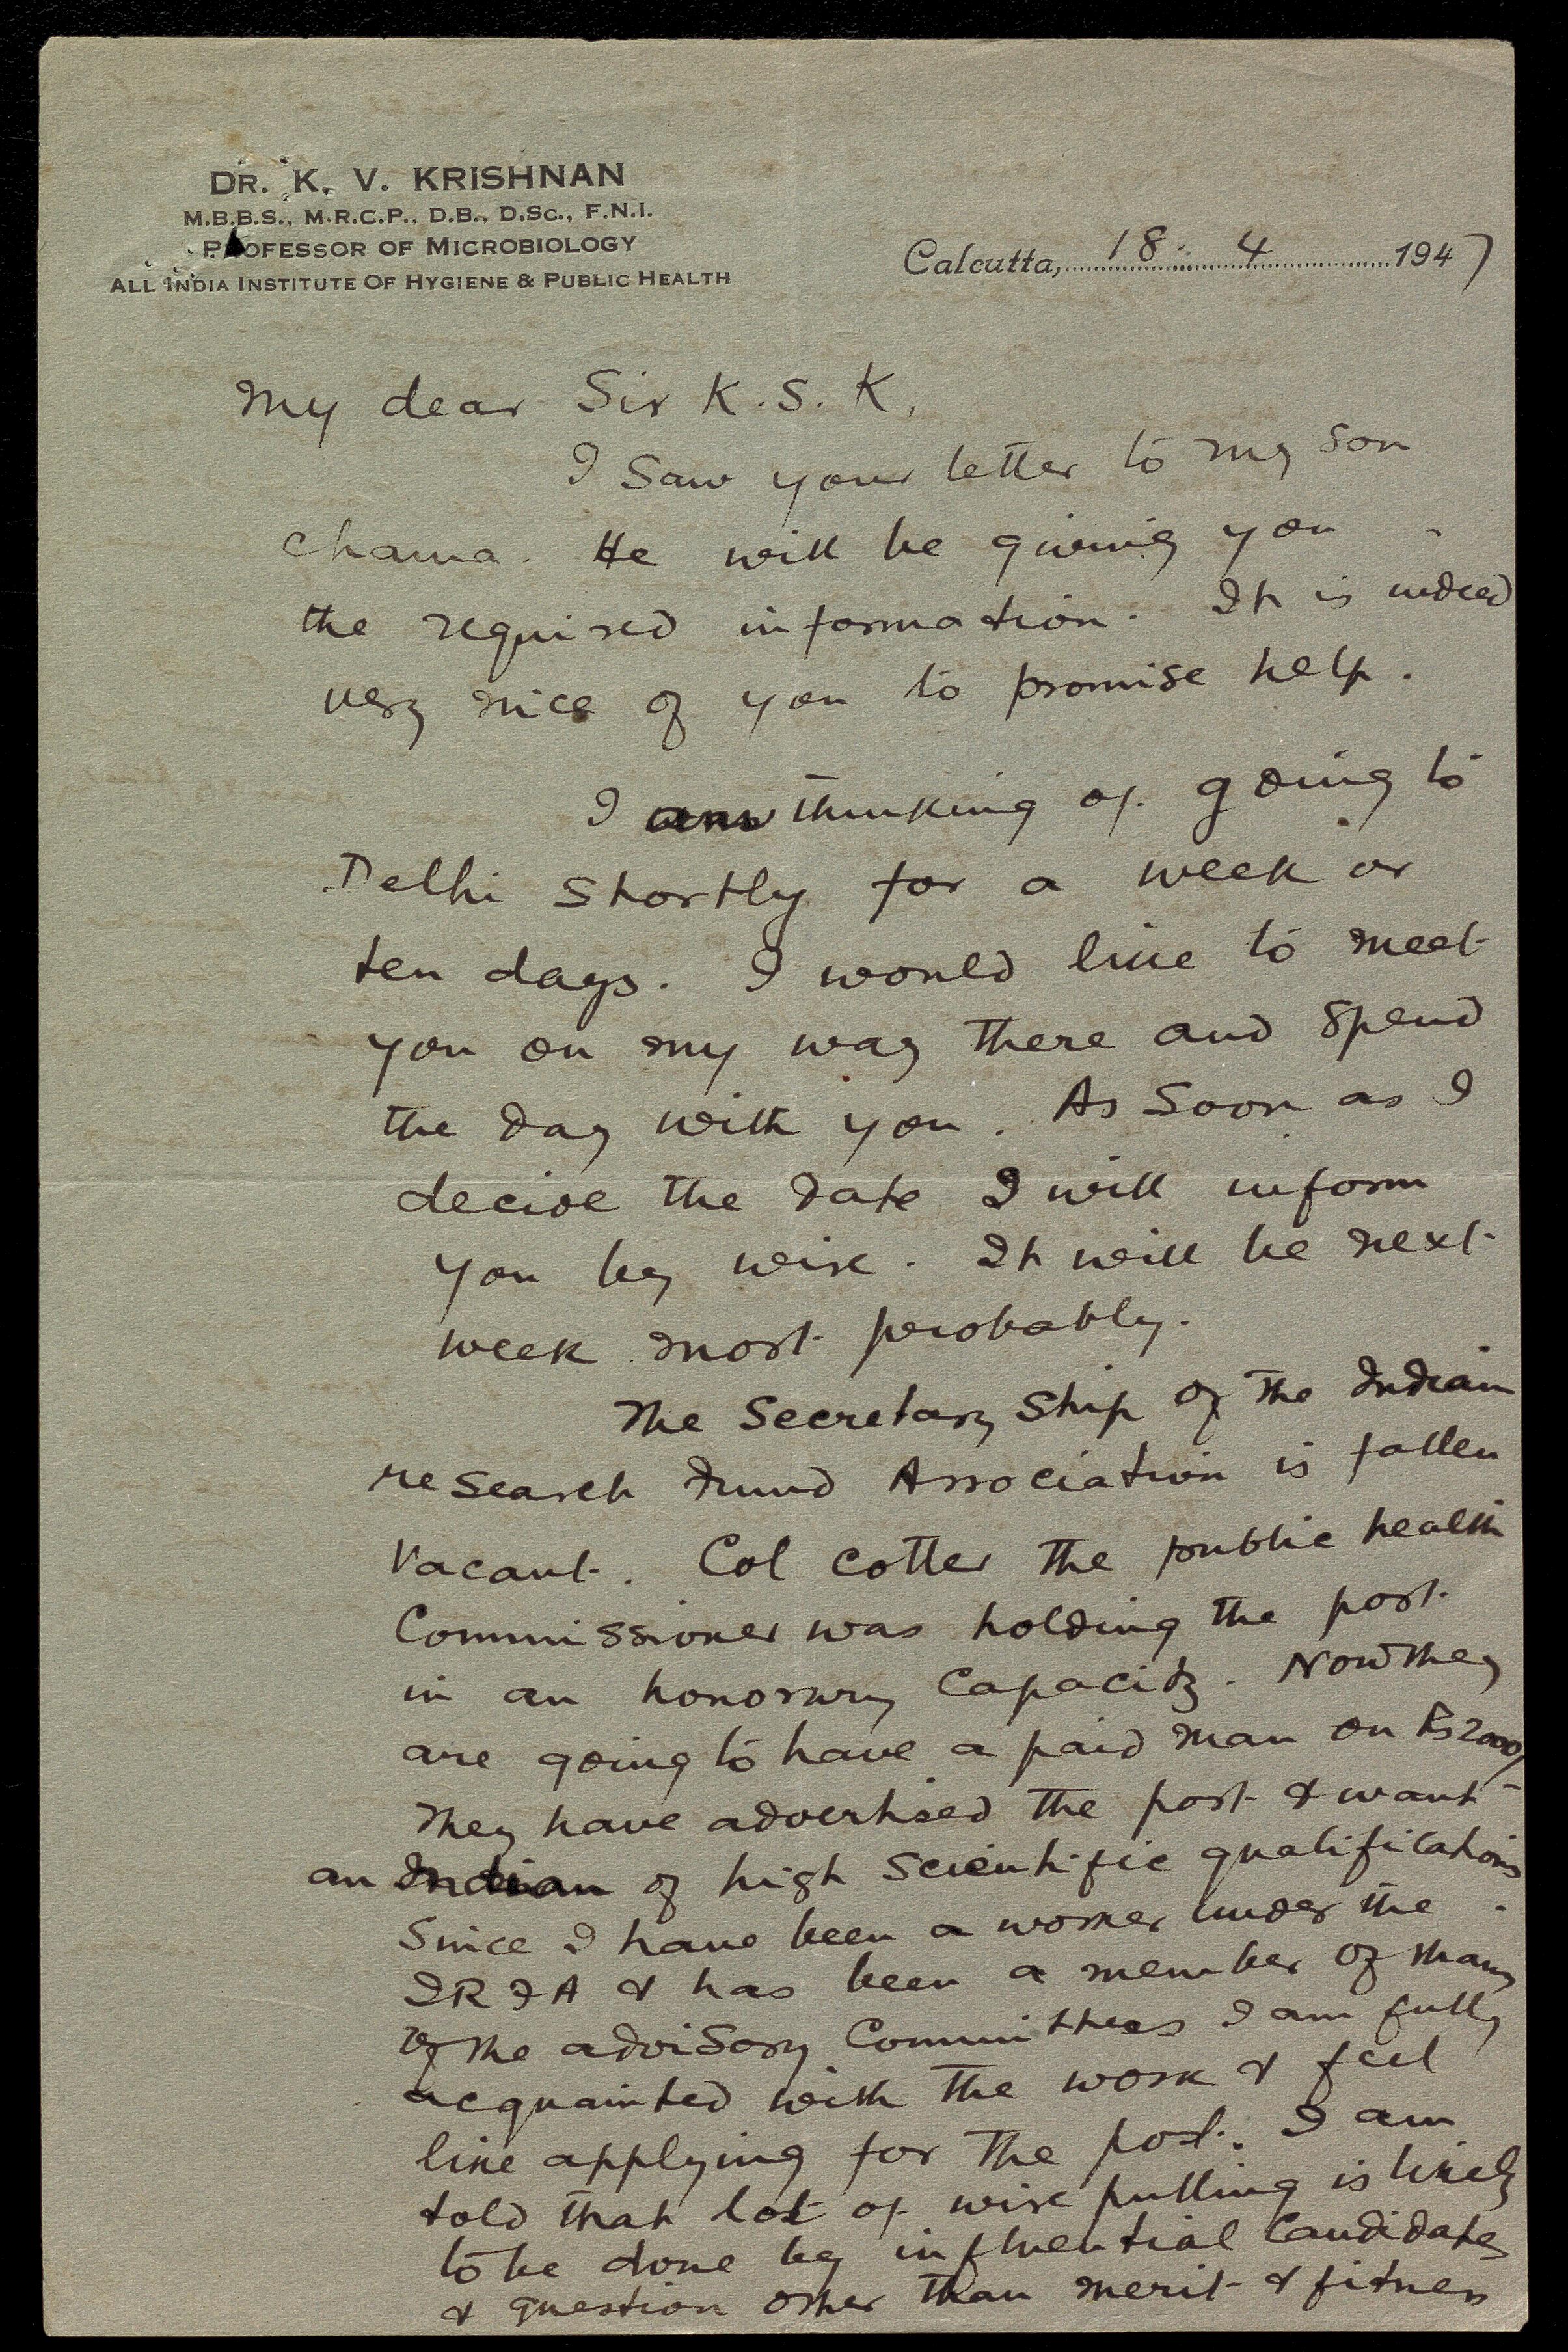 DR. K. V. KRISHNAN
M.B.B.S., M.R.C.P., D.B., D.Sc., F.N.I.
PROFESSOR OF MICROBIOLOGY
ALL INDIA INSTITUTE OF HYGIENE & PUBLIC HEALTH
Calcutta, 18. 4 1947
My dear Sir K.S.K,
I Saw your letter to my son
Chama. He will be giving you
the required information. It is indeed
very nice of you to promise help.
I am thinking of going to
Delhi shortly for a week or
ten days. I would like to meet
you on my way there and spend
the day with you. As soon as I
decide the date I will inform
you by wire. It will be next
week most probably.
The Secretary Ship of the Indian
research Fund Association is fallen
vacant. Col Cotter the public health
Commissioner was holding the post
in an honorary Capacity. Now they
are going to have a paid man on Rs 2000/-
They have advertised the post & want
an Indian of high Scientific qualifications.
Since I have been a worker under the
IRFA & has been a member of many
of the advisory Committees I am fully
acquainted with the work & feel
like applying for the post. I am
told that lot of wire pulling is likely
to be done by influential Candidates
& question other than merit & fitness